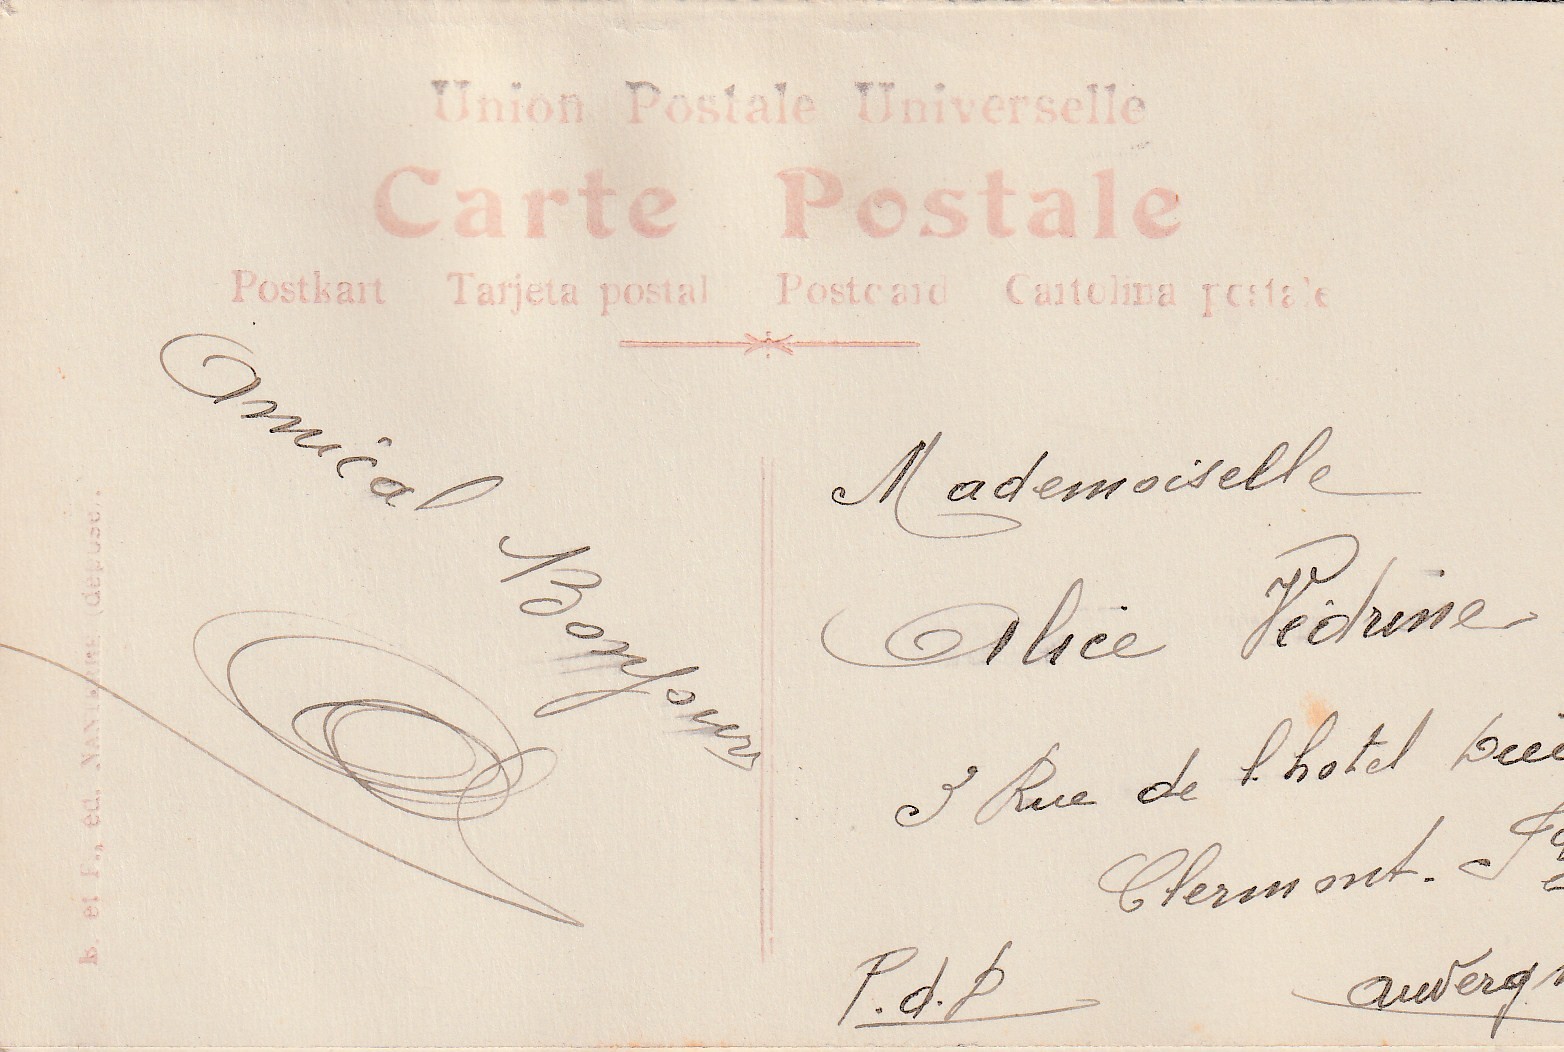 Union Postale Universelle
Carte Postale
Postkart Tarjeta postal Postcard Cartolina postale
Amical Bonjour
Mademoiselle
Alice Védrine
3 Rue de l'hotel
Clermont-
P.d.D
B. et F., éd. NANTERRE (déposé).